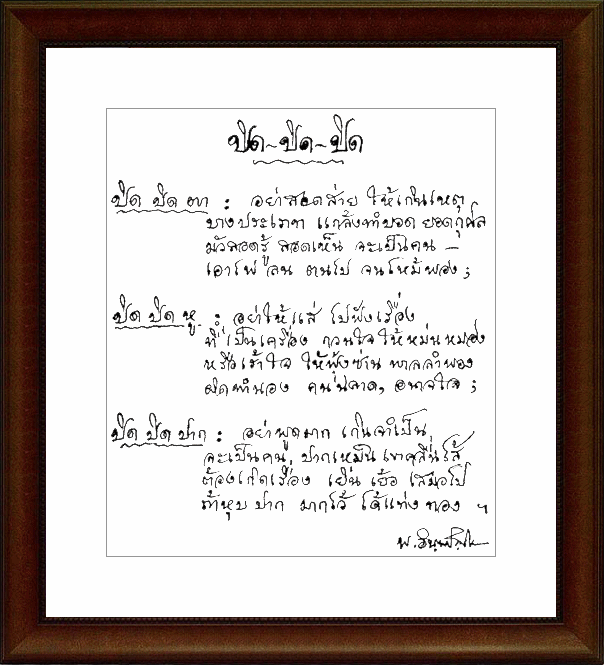 ปิด-ปิด-ปิด
ปิด ปิด ตา : อย่าสอดส่าย ให้เกินเหตุ
บางประเภท แกล้งทำบอด ยอดกุศล
มัวสอดรู้ สอดเห็น จะเป็นคน –
เอาไฟลน ตนไป จนไหม้พอง ;
ปิด ปิด หู : อย่าให้แส่ ไปฟังเรื่อง
ที่เป็นเครื่อง กวนใจ ให้หม่นหมอง
หรือเร้าใจ ให้ฟุ้งซ่าน พาลลำพอง
ผิดทำนอง คนฉลาด, อนาถใจ ;
ปิด ปิด ปาก : อย่าพูดมาก เกินจำเป็น
จะเป็นคน, ปากเหม็น เขาคลื่นไส้
ต้องเกิดเรื่อง เยิ่นเย้อ เสมอไป
ถ้าหุบปาก มากไว้ ได้แท่งทอง ฯ